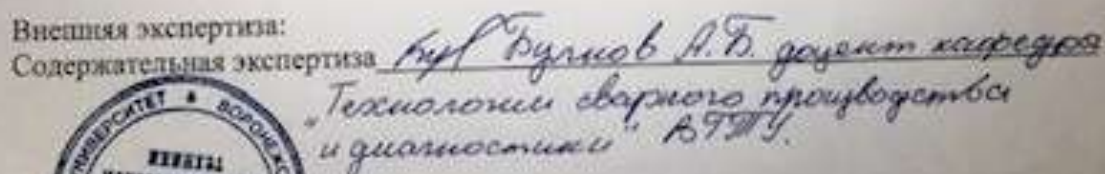 Внешняя экспертиза:
Содержательная экспертиза Булков А.Б. доцент кафедры
"Технологии сварного производства
и диагностики" ВГТУ.
УНИВЕРСИТЕТ * ВОРОНЕЖСК